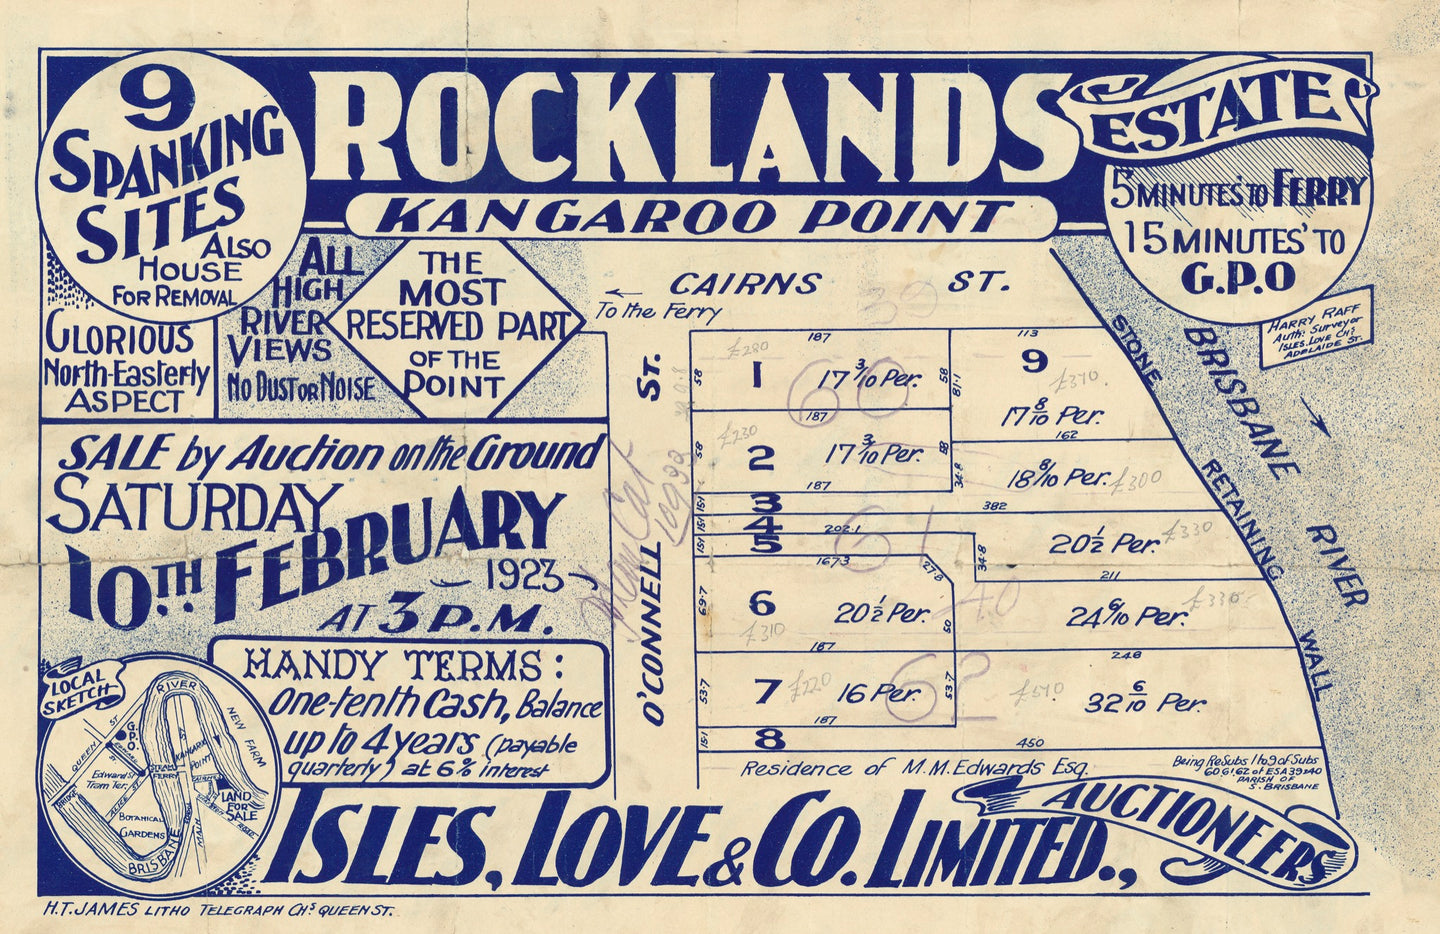 9
SPANKING
SITES
ALSO
HOUSE
FOR REMOVAL
ROCKLANDS
ESTATE
KANGAROO POINT
5 MINUTES' TO FERRY
15 MINUTES' TO
G.P.O
GLORIOUS
NORTH-EASTERLY
ASPECT
ALL
HIGH
RIVER
VIEWS
NO DUST OR NOISE
THE
MOST
RESERVED PART
OF THE
POINT
HARRY RAFF
Auth: Surveyor
ISLES, LOVE CHs
ADELAIDE ST.
SALE by Auction on the Ground
SATURDAY
10TH FEBRUARY
1923
AT 3 P.M.
HANDY TERMS:
One-tenth Cash, Balance
up to 4 years (payable
quarterly) at 6% interest
LOCAL
SKETCH
RIVER
NEW FARM
QUEEN ST
G.P.O.
Edward St
Tram Ter.
STEAM
FERRY
KANGAROO
POINT
ALICE ST
BOTANICAL
GARDENS
BRIDGE
MAIN
LAND
FOR
SALE
BRISBANE
CAIRNS ST.
← To the Ferry
O'CONNELL ST.
STONE RETAINING WALL
BRISBANE RIVER
187
£280
58
1
17 3/10 Per.
58
113
9
81·1
£370.
17 8/10 Per.
162
187
£230
58
2
17 3/10 Per.
88
187
34·8
18 8/10 Per.
£300
15·1
3
382
15·1
4
202·1
20 1/2 Per.
£330
15·1
5
167·3
27·8
34·8
211
69·7
6
20 1/2 Per.
£310
50
187
24 6/10 Per.
£330
248
53·7
7
£220
16 Per.
53·7
187
£540
32 6/10 Per.
15·1
8
450
39
60
61
40
62
Residence of M.M. Edwards Esq.
Being ReSubs 1 to 9 of Subs
60 61, 62 of ESA 39 & 40
PARISH OF
S. BRISBANE
ISLES, LOVE & CO. LIMITED.,
AUCTIONEERS
H.T. JAMES LITHO TELEGRAPH CHs QUEEN ST.